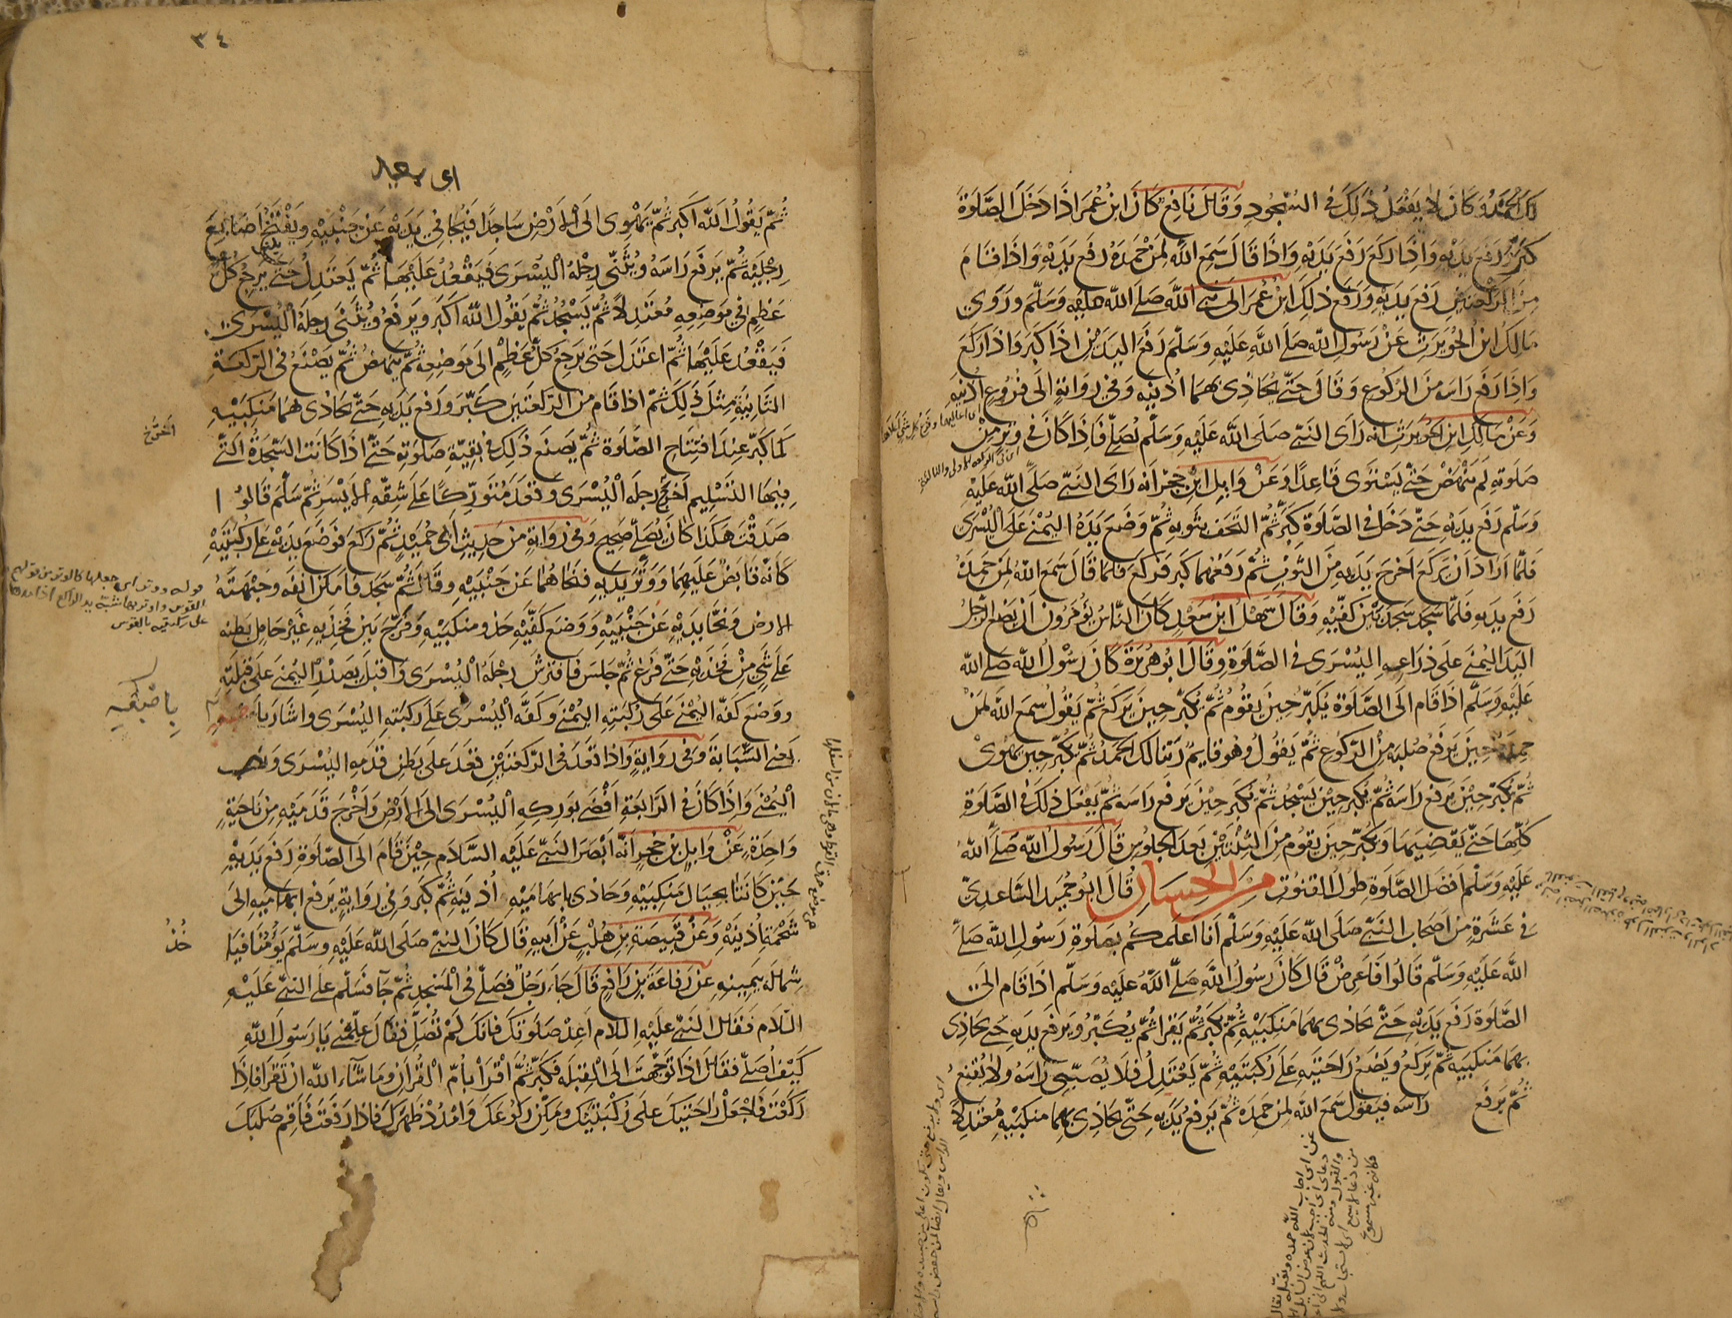 لك الحمد وكان لا يفعل ذلك في السجود وقال نافع كان ابن عمر اذا دخل الصلوة
كبر ورفع يديه واذا ركع رفع يديه واذا قال سمع الله لمن حمده رفع يديه واذا قام
من الركعتين رفع يديه ورفع ذلك ابن عمر الى نبي الله صلى الله عليه وسلم وروى
مالك ابن الحويرث عن رسول الله صلى الله عليه وسلم رفع اليدين اذا كبر واذا ركع
واذا رفع راسه من الركوع وقال حتى يحاذى بهما اذنيه وفي رواية الى فروع اذنيه
وعن مالك ابن الحويرث انه راى النبي صلى الله عليه وسلم يصلي فاذا كان في وتر من
صلوته لم ينهض حتى يستوى قاعدا وعن وايل ابن حجر انه راى النبي صلى الله عليه
وسلم رفع يديه حتى دخل في الصلاوة كبر ثم التحف بثوبه ثم وضع يده اليمنى على اليسرى
فلما اراد ان يركع اخرج يديه من الثوب ثم رفعهما كبر فركع فلما قال سمع الله لمن حمده
رفع يديه فلما سجد سجد بين كفيه وقال سهل ابن سعد كان الناس يؤمرون ان يضع الرجل
اليد اليمنى على ذراعه اليسرى في الصلاوة وقال ابو هريرة كان رسول الله صلى الله
عليه وسلم اذا قام الى الصلاوة يكبر حين يقوم ثم يكبر حين يركع ثم يقول سمع الله لمن
حمده حين يرفع صلبه من الركوع ثم يقول وهو قايم ربنا لك الحمد ثم يكبر حين يهوى
ثم يكبر حين يرفع راسه ثم يكبر حين يسجد ثم يكبر حين يرفع راسه ثم يفعل ذلك في الصلاوة
كلها حتى يقضيها ويكبر حين يقوم من الثنتين بعد الجلوس قال رسول الله صلى الله
عليه وسلم افضل الصلاوة طول القنوت من الحسان قال ابو حميد الساعدى
في عشرة من اصحاب النبي صلى الله عليه وسلم انا اعلمكم بصلوة رسول الله صلى
الله عليه وسلم قالوا فاعرض قال كان رسول الله صلى الله عليه وسلم اذا قام الى
الصلاوة رفع يديه حتى يحاذى بهما منكبيه ثم يكبر ثم يقرا ثم يكبر ويرفع يديه حتى يحاذى
بهما منكبيه ثم يركع ويضع راحتيه على ركبتيه ثم يعتدل فلا يصبي راسه ولا يقنع
ثم يرفع راسه فيقول سمع الله لمن حمده ثم يرفع يديه حتى يحاذى بهما منكبيه معتدلا
٣٤
اى يبعد
ثم يقول الله اكبر ثم يهوى الى الارض ساجدا فيجافي يديه عن جنبيه ويفتخ اصابع
رجليه ثم يرفع راسه ويثني رجله اليسرى فيقعد عليها ثم يعتدل حتى يرجع كل
عظم في موضعه معتدلا ثم يسجد ثم يقول الله اكبر ويرفع ويثنى رجله اليسرى
فيقعد عليها ثم اعتدل حتى يرجع كل عظم الى موضعه ثم ينهض ثم يصنع في الركعة
الثانية مثل ذلك ثم اذا قام من الركعتين كبر ورفع يديه حتى يحاذى بهما منكبيه
كما كبر عند افتتاح الصلاوة ثم يصنع ذلك في بقية صلوته حتى اذا كانت السجدة التي
فيها التسليم اخرج رجله اليسرى وقعد متوركا على شقه الايسر ثم سلم قالوا
صدقت هكذا كان يصلي صحيح وفي رواية من حديث ابي حميد ثم ركع فوضع يديه على ركبتيه
كانه قابض عليهما ووتر يديه فنحاهما عن جنبيه وقال ثم سجد فامكن انفه وجبهته
الارض ونحا يديه عن جنبيه ووضع كفيه حذو منكبيه وفرج بين فخذيه غير حامل بطنه
على شئ من فخذيه حتى فرغ ثم جلس فافترش رجله اليسرى واقبل بصدر اليمنى على قبلته
ووضع كفه اليمنى على ركبته اليمنى وكفه اليسرى على ركبته اليسرى واشار
يعني السبابة وفي رواية واذا قعد في الركعتين قعد على بطن قدمه اليسرى ونصب
اليمنى واذا كان في الرابعة افضى بوركه اليسرى الى الارض واخرج قدميه من ناحية
واحدة عن وايل بن حجر انه ابصر النبي عليه السلام حين قام الى الصلاوة رفع يديه
حتى كانتا بحيال منكبيه وحاذى بابهاميه اذنيه ثم كبر وفي رواية يرفع ابهاميه الى
شحمة اذنيه وعن قبيصة بن هلب عن ابيه قال كان النبي صلى الله عليه وسلم يؤمنا فياخذ
شماله بيمينه عن رفاعة بن رافع قال جاء رجل فصلى في المسجد ثم جاء فسلم على النبي عليه
السلام فقال النبي عليه السلام اعد صلوتك فانك لم تصل فقال علمني يا رسول الله
كيف اصلي فقال اذا توجهت الى القبلة فكبر ثم اقرا بام القران وما شاء الله ان تقرا فاذا
ركعت فاجعل راحتيك على ركبتيك ومكن ركوعك وامدد ظهرك فاذا رفعت فاقم صلبك
اخرج
باصبعيه
خذ